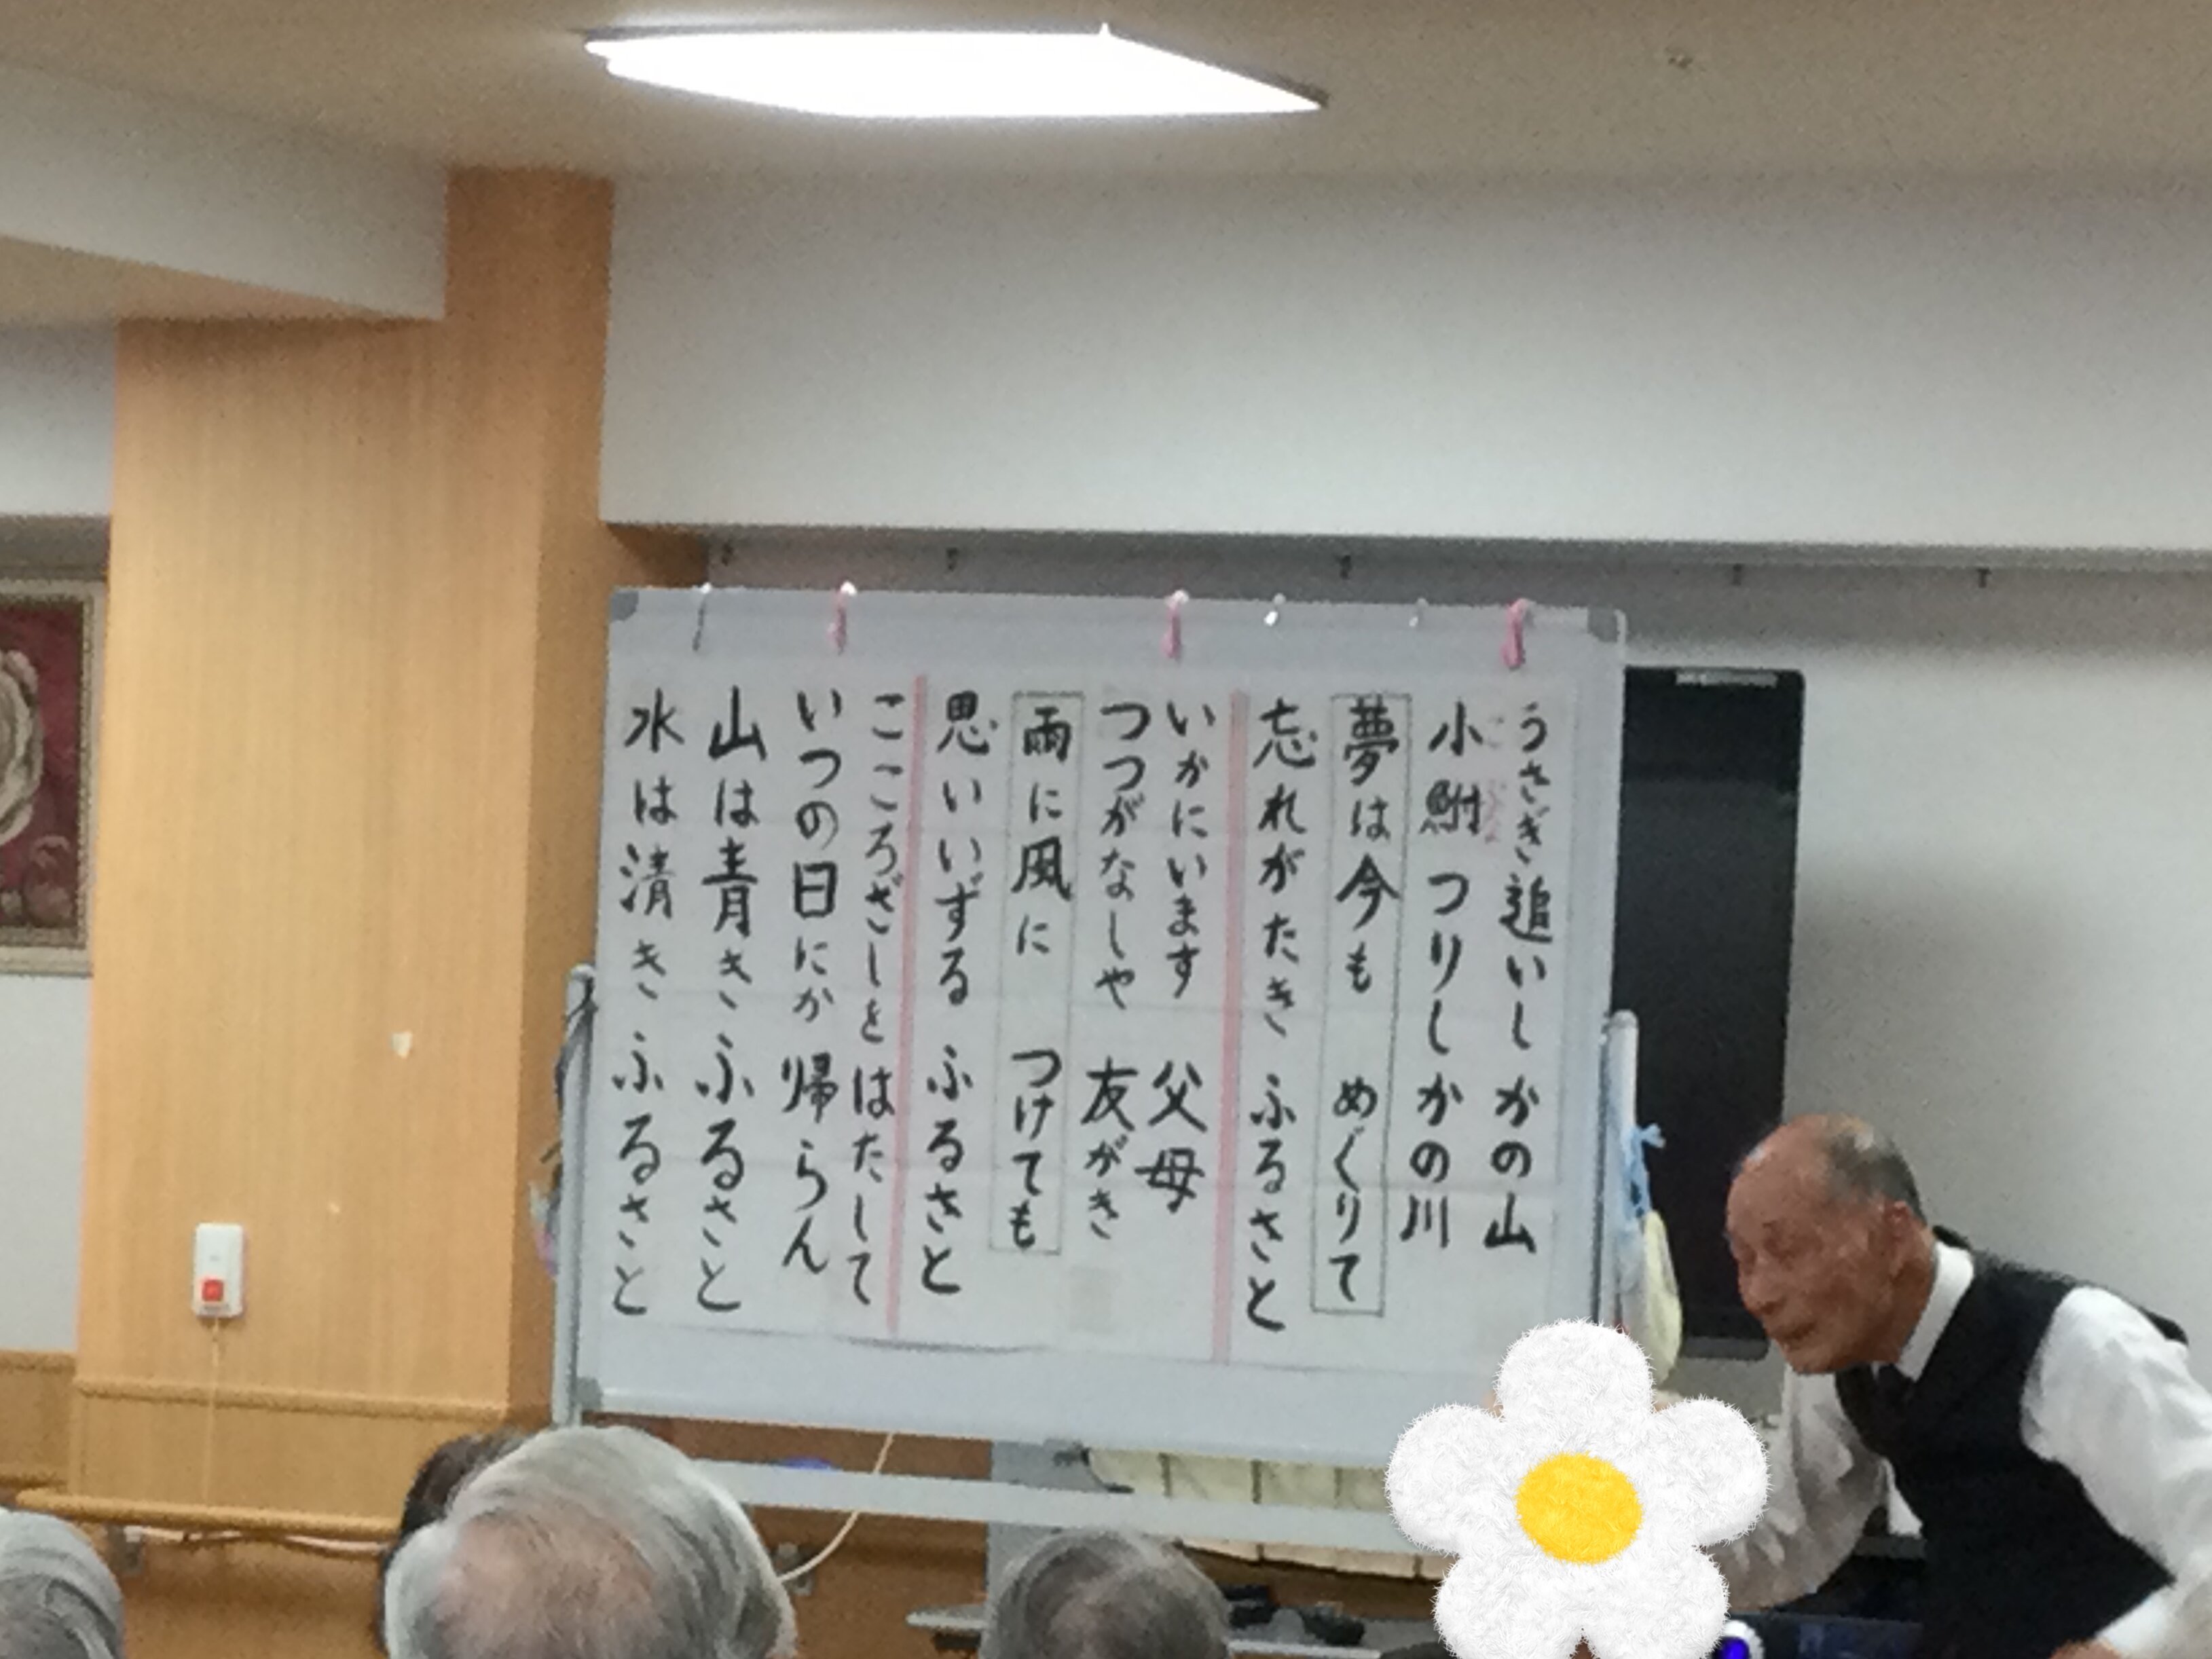 うさぎ追いしかの山
小鮒つりしかの川
夢は今も めぐりて
忘れがたき ふるさと
いかにいます 父母
つつがなしや 友がき
雨に風に つけても
思いいずる ふるさと
こころざしを はたして
いつの日にか 帰らん
山は青き ふるさと
水は清き ふるさと